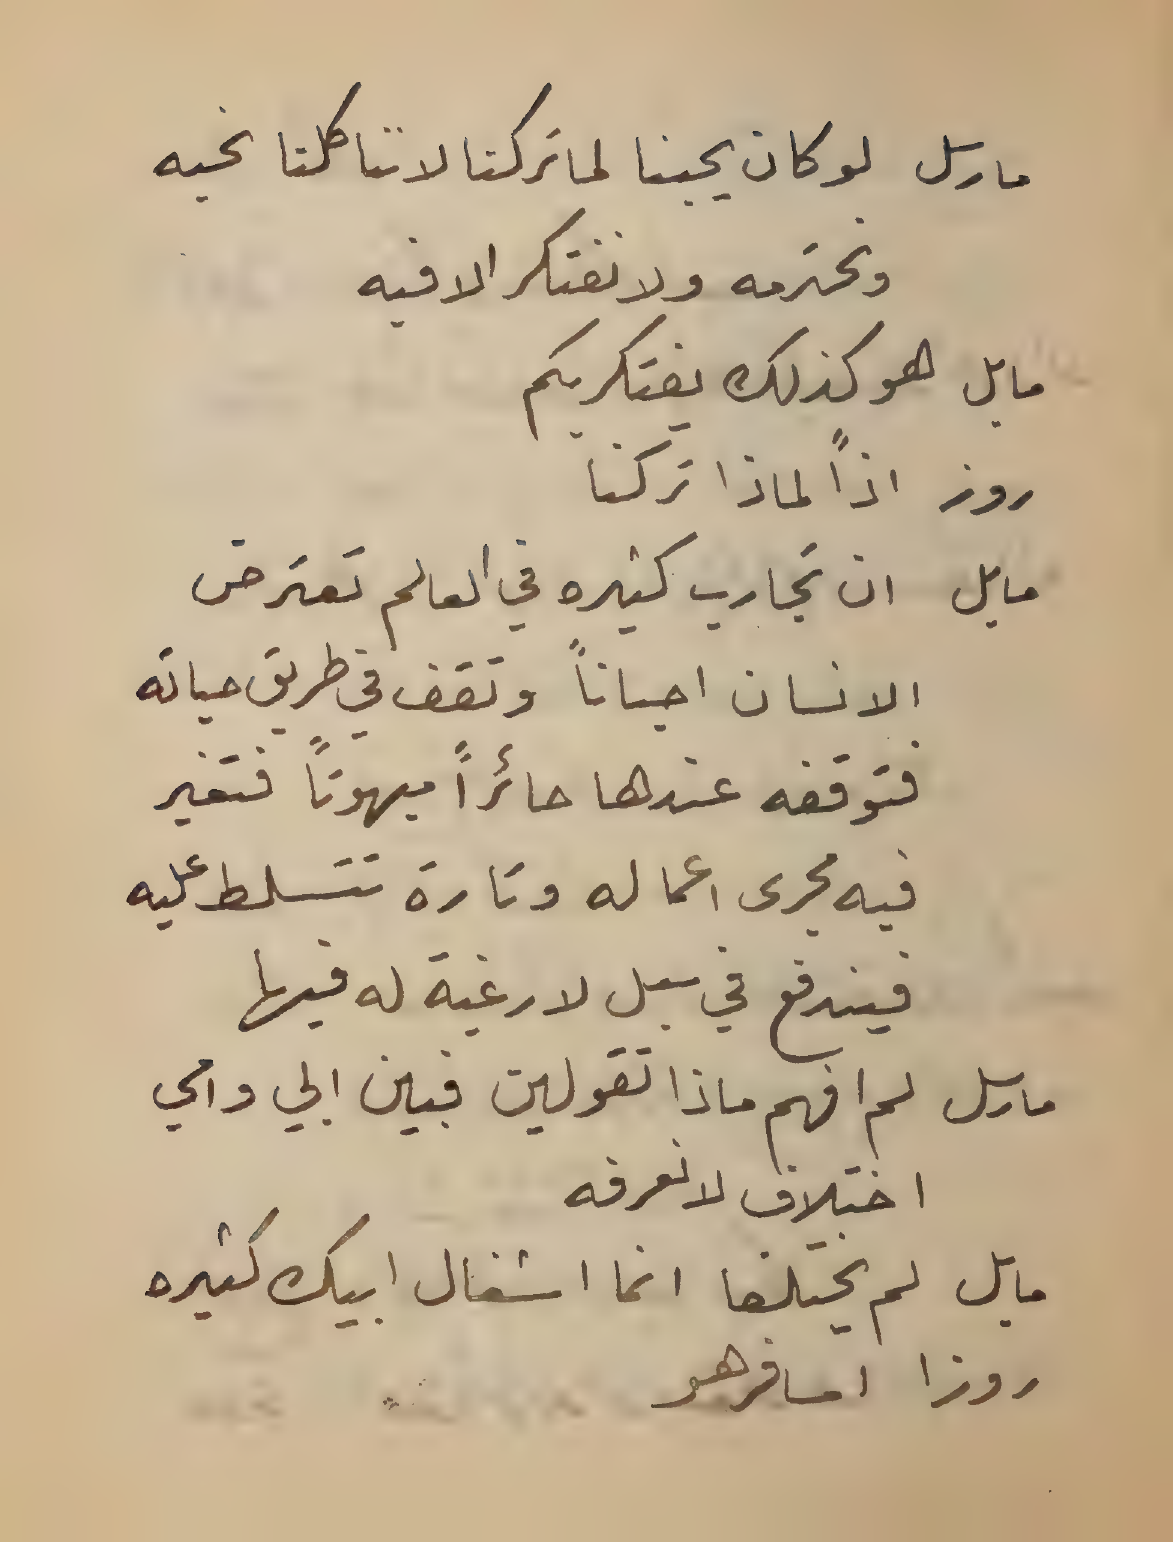 مارسل لو كان يحبنا لما تركنا لاننا كلنا نحبه
ونحترمه ولا نفتكر الا فيه
مابل هو كذلك يفتكر بكم
روز اذاً لماذا تركنا
مابل ان تجارب كثيره في العالم تعترض
الانسان احياناً وتقف في طريق حياته
فتوقفه عندها حائراً مبهوتاً فتغير
فيه مجرى اعماله وتارة تتسلط عليه
فيندفع في سبل لا رغبة له فيها
مارسل لم افهم ماذا تقولين فبين ابي وامي
اختلاف لا نعرفه
مابل لم يختلفا انما اشغال ابيك كثيره
روزا امسافر هو